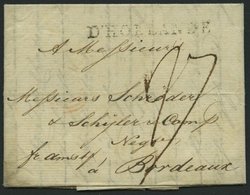 D'HOLLANDE
A Messieurs
Messieurs Schröder
& Schÿler & Comp
Negts
à Bordeaux